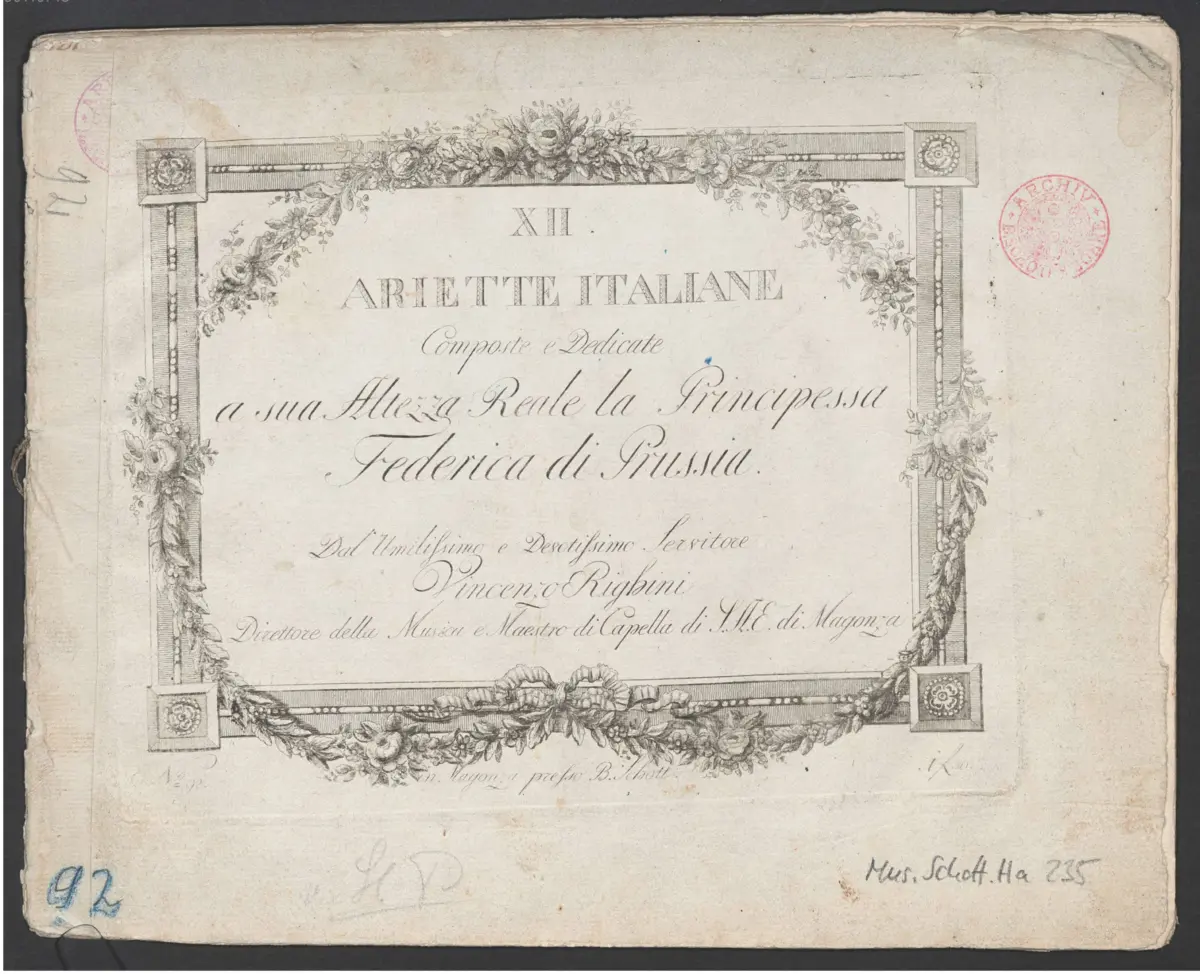 XII.
ARIETTE ITALIANE
Composte e Dedicate
a sua Altezza Reale la Principessa
Federica di Prussia.
Dal' Umilissimo e Devotissimo Servitore
Vincenzo Righini
Direttore della Musica e Maestro di Capella di S.A.E. di Magonza
in Magonza presso B. Schott
ARCHIV
92
Mus. Schott. Ha 235
92